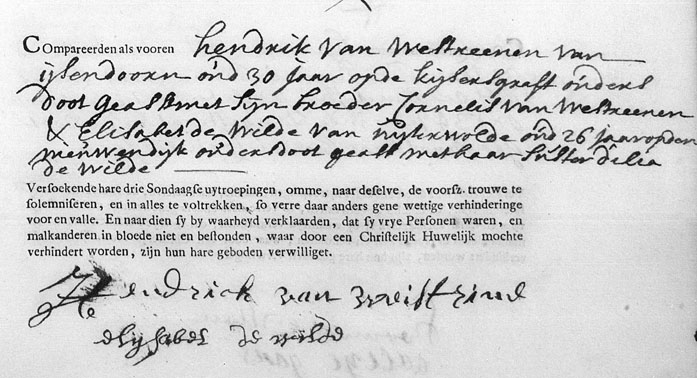 COmpareerden als vooren hendrik van westreenen van
ijsendoorn oud 30 jaar op de kijsersgraft ouders
doot geast met sijn broeder Cornelis van Westreenen
& Elisabet de Wilde van nijkerwolde oud 26 jaar op den
nieuwendijk ouders doot geast met haar suster delia
de wilde
Versoeckende hare drie Sondaagse uytroepingen, omme, naar deselve, de voorsz. trouwe te
solemniseren, en in alles te voltrekken, so verre daar anders gene wettige verhinderinge
voor en valle. En naar dien sy by waarheyd verklaarden, dat sy vrye Personen waren, en
malkanderen in bloede niet en bestonden, waar door een Christelijk Huwelijk mochte
verhindert worden, zijn hun hare geboden verwilliget.
Hendrick van weistrind
elysabet de wilde